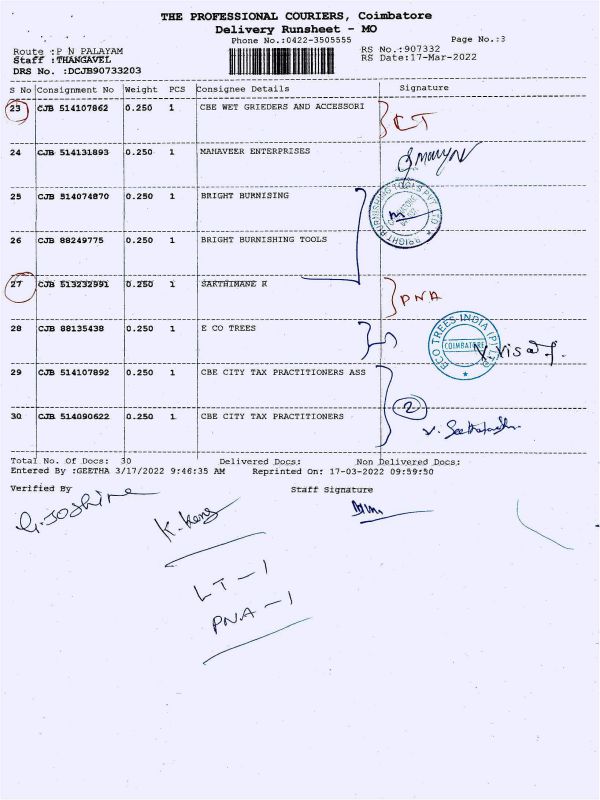 THE PROFESSIONAL COURIERS, Coimbatore
Delivery Runsheet - MO
Phone No.:0422-3505555 Page No.:3
Route :P N PALAYAM RS No.:907332
Staff :THANGAVEL RS Date:17-Mar-2022
DRS No. :DCJB90733203
S No Consignment No Weight PCS Consignee Details Signature
23 CJB 514107862 0.250 1 CBE WET GRIEDERS AND ACCESSORI
24 CJB 514131893 0.250 1 MAHAVEER ENTERPRISES
25 CJB 514074870 0.250 1 BRIGHT BURNISING
26 CJB 88249775 0.250 1 BRIGHT BURNISHING TOOLS
27 CJB 513232991 0.250 1 SARTHIMANE R PNA
28 CJB 88135438 0.250 1 E CO TREES
ECO TREES INDIA (P) LTD
COIMBATORE
29 CJB 514107892 0.250 1 CBE CITY TAX PRACTITIONERS ASS
2
30 CJB 514090622 0.250 1 CBE CITY TAX PRACTITIONERS
Total No. Of Docs: 30 Delivered Docs: Non Delivered Docs:
Entered By :GEETHA 3/17/2022 9:46:35 AM Reprinted On: 17-03-2022 09:59:50
Verified By Staff Signature
LT-1
PNA-1